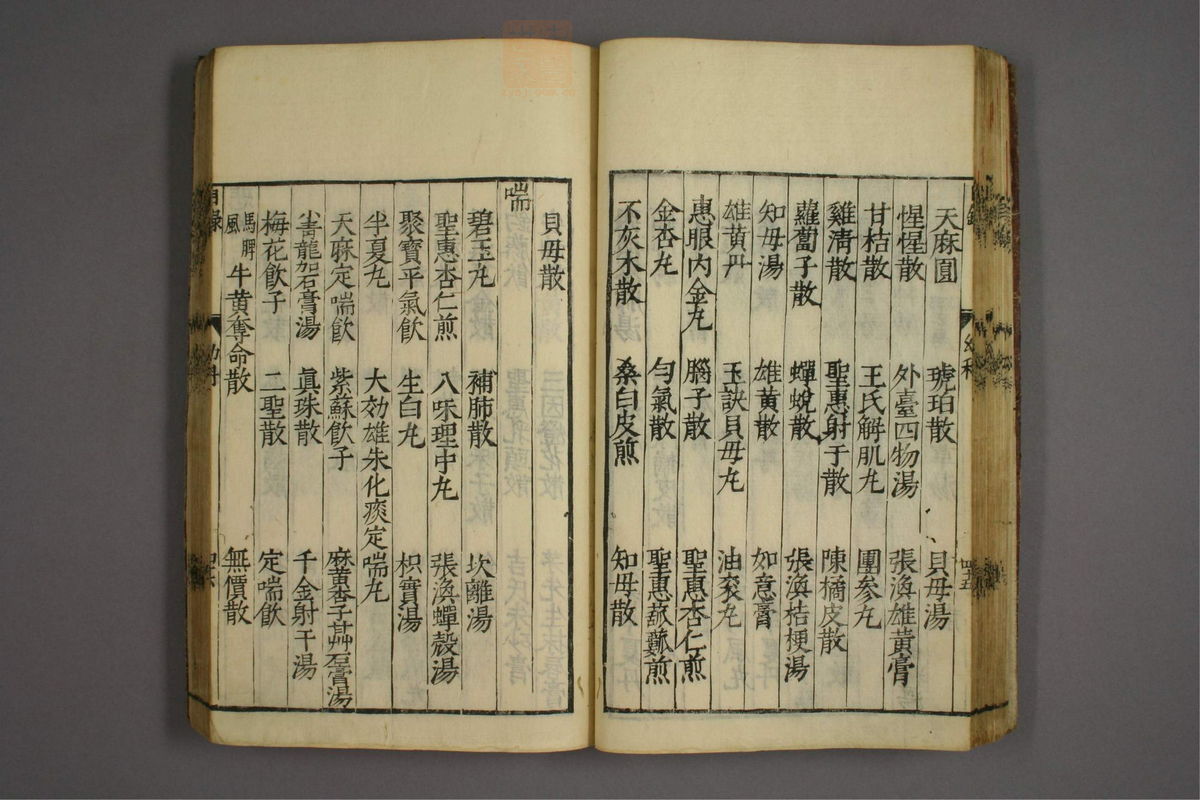 天麻圓 琥珀散 貝母湯
惺惺散 外臺四物湯 張渙雄黄膏
甘桔散 王氏解肌丸 團参丸
雞清散 聖惠射干散 陳橘皮散
蘿蔔子散 蟬蛻散 張渙桔梗湯
知母湯 雄黄散 如意膏
雄黄丹 玉訣貝母丸 油衮丸
惠眼内金丸 腦子散 聖惠杏仁煎
金杏丸 勻氣散 聖惠菰蓏煎
不灰木散 桑白皮煎 知母散
貝母散
喘
碧玉丸 補肺散 坎離湯
聖惠杏仁煎 八味理中丸 張渙蟬殼湯
聚寶平氣飲 生白丸 枳實湯
半夏丸 大効雄朱化痰定喘丸
天麻定喘飲 紫蘇飲子 麻黄杏子艸石膏湯
小青龍加石膏湯 眞珠散 千金射干湯
梅花飲子 二聖散 定喘飲
馬脾風 牛黄奪命散 無價散
目錄 四六
四五